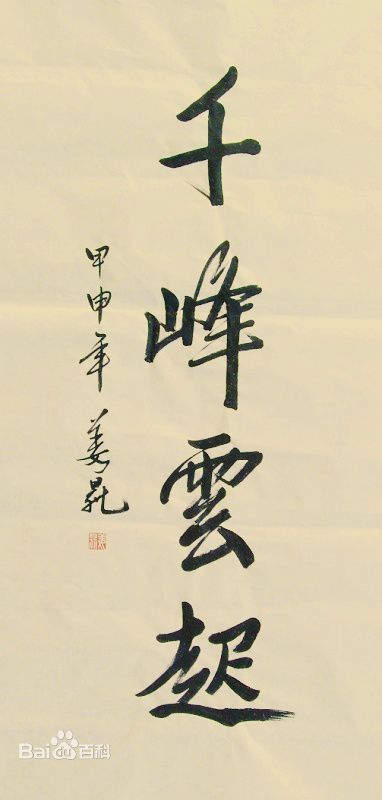 千峰雲起
甲申年 姜昆
Bai du 百科